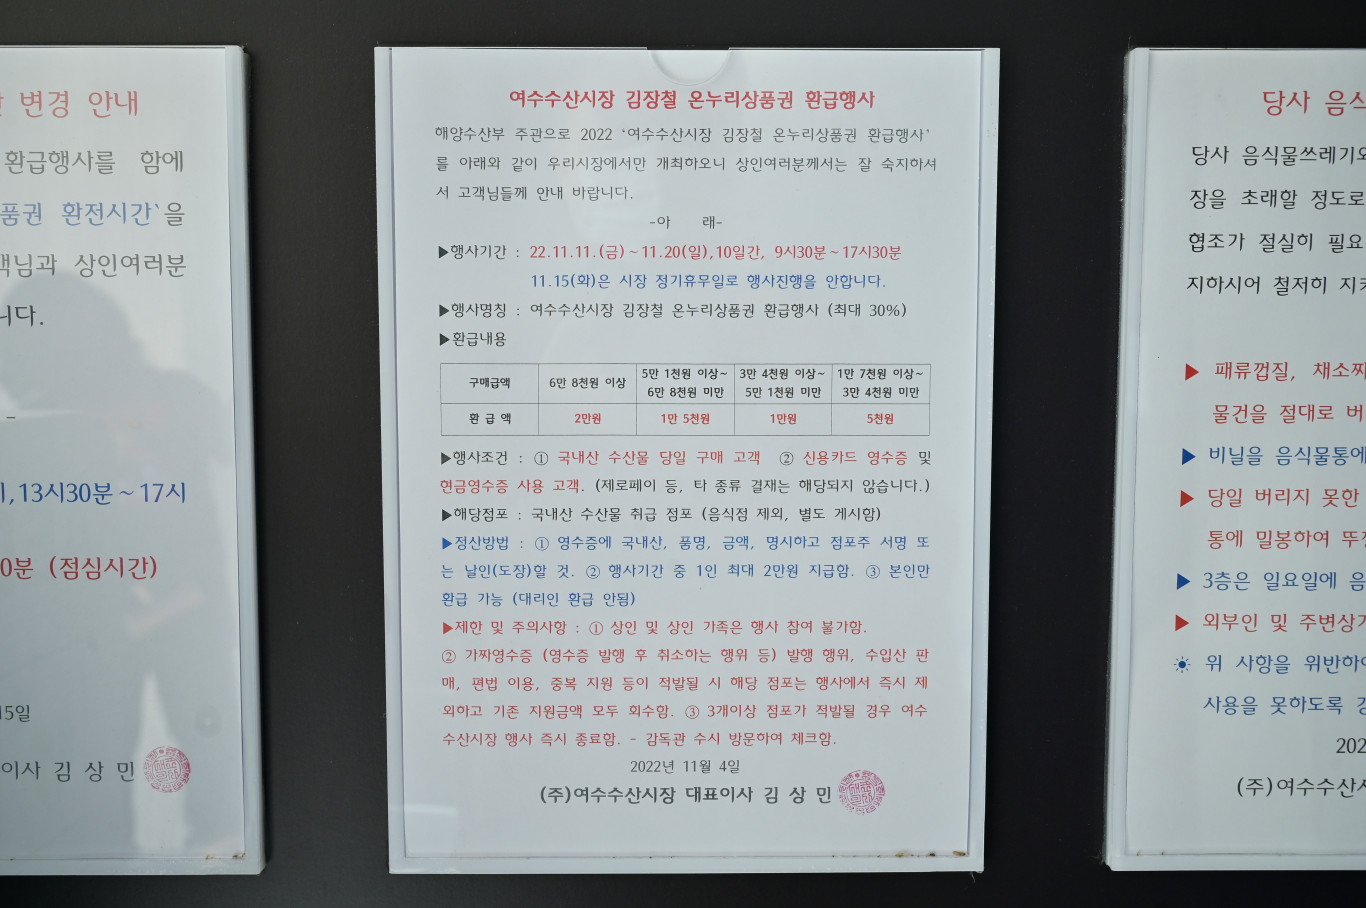 변경 안내
환급행사를 함에
품권 환전시간`을
객님과 상인여러분
니다.
-
,13시30분~17시
0분 (점심시간)
15일
이사 김 상 민
여수수산시장 김장철 온누리상품권 환급행사
해양수산부 주관으로 2022 ‘여수수산시장 김장철 온누리상품권 환급행사’
를 아래와 같이 우리시장에서만 개최하오니 상인여러분께서는 잘 숙지하셔
서 고객님들께 안내 바랍니다.
-아 래-
▶행사기간 : 22.11.11.(금)~11.20(일),10일간, 9시30분~17시30분
11.15(화)은 시장 정기휴무일로 행사진행을 안합니다.
▶행사명칭 : 여수수산시장 김장철 온누리상품권 환급행사 (최대 30%)
▶환급내용
구매급액 6만 8천원 이상 5만 1천원 이상~ 6만 8천원 미만 3만 4천원 이상~ 5만 1천원 미만 1만 7천원 이상~ 3만 4천원 미만
환 급 액 2만원 1만 5천원 1만원 5천원
▶행사조건 : ① 국내산 수산물 당일 구매 고객 ② 신용카드 영수증 및
현금영수증 사용 고객. (제로페이 등, 타 종류 결재는 해당되지 않습니다.)
▶해당점포 : 국내산 수산물 취급 점포 (음식점 제외, 별도 게시함)
▶정산방법 : ① 영수증에 국내산, 품명, 금액, 명시하고 점포주 서명 또
는 날인(도장)할 것. ② 행사기간 중 1인 최대 2만원 지급함. ③ 본인만
환급 가능 (대리인 환급 안됨)
▶제한 및 주의사항 : ① 상인 및 상인 가족은 행사 참여 불가함.
② 가짜영수증 (영수증 발행 후 취소하는 행위 등) 발행 행위, 수입산 판
매, 편법 이용, 중복 지원 등이 적발될 시 해당 점포는 행사에서 즉시 제
외하고 기존 지원금액 모두 회수함. ③ 3개이상 점포가 적발될 경우 여수
수산시장 행사 즉시 종료함. - 감독관 수시 방문하여 체크함.
2022년 11월 4일
(주)여수수산시장 대표이사 김 상 민
당사 음식
당사 음식물쓰레기와
장을 초래할 정도로
협조가 절실히 필요
지하시어 철저히 지키
▶ 패류껍질, 채소찌
물건을 절대로 버
▶ 비닐을 음식물통에
▶ 당일 버리지 못한
통에 밀봉하여 뚜껑
▶ 3층은 일요일에 음
▶ 외부인 및 주변상가
☀ 위 사항을 위반하여
사용을 못하도록 강
202
(주)여수수산시